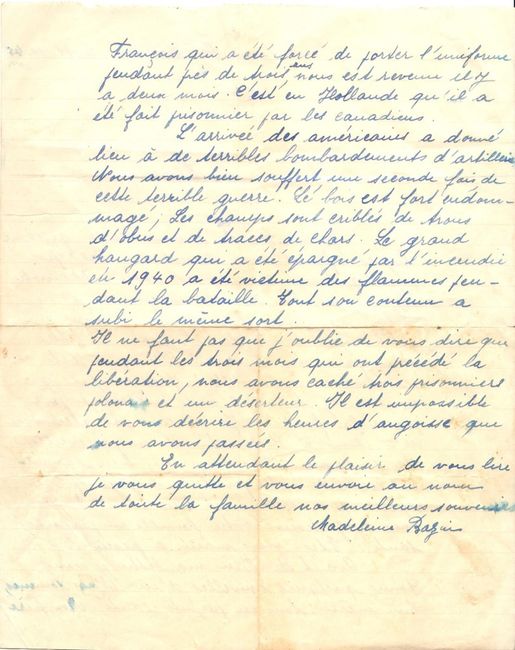 François qui a été forcé de porter l'uniforme
pendant près de trois ans nous est revenu il y
a deux mois. C'est en Hollande qu'il a
été fait prisonnier par les canadiens.
L'arrivée des américains a donné
lieu à de terribles bombardements d'artillerie
Nous avons bien souffert une seconde fois de
cette terrible guerre. Le bois est fort endom-
magé; Les champs sont criblés de trous
d'obus et de traces de chars. Le grand
hangard qui a été épargné par l'incendie
en 1940 a été victime des flammes pen-
dant la bataille. Tout son contenu a
subi le même sort.
Il ne faut pas que j'oublie de vous dire que
pendant les trois mois qui ont précédé la
libération, nous avons caché trois prisonniers
polonais et un déserteur. Il est impossible
de vous décrire les heures d'angoisse que
nous avons passées.
En attendant le plaisir de vous lire
je vous quitte et vous envoie au nom
de toute la famille nos meilleurs souvenirs
Madeleine